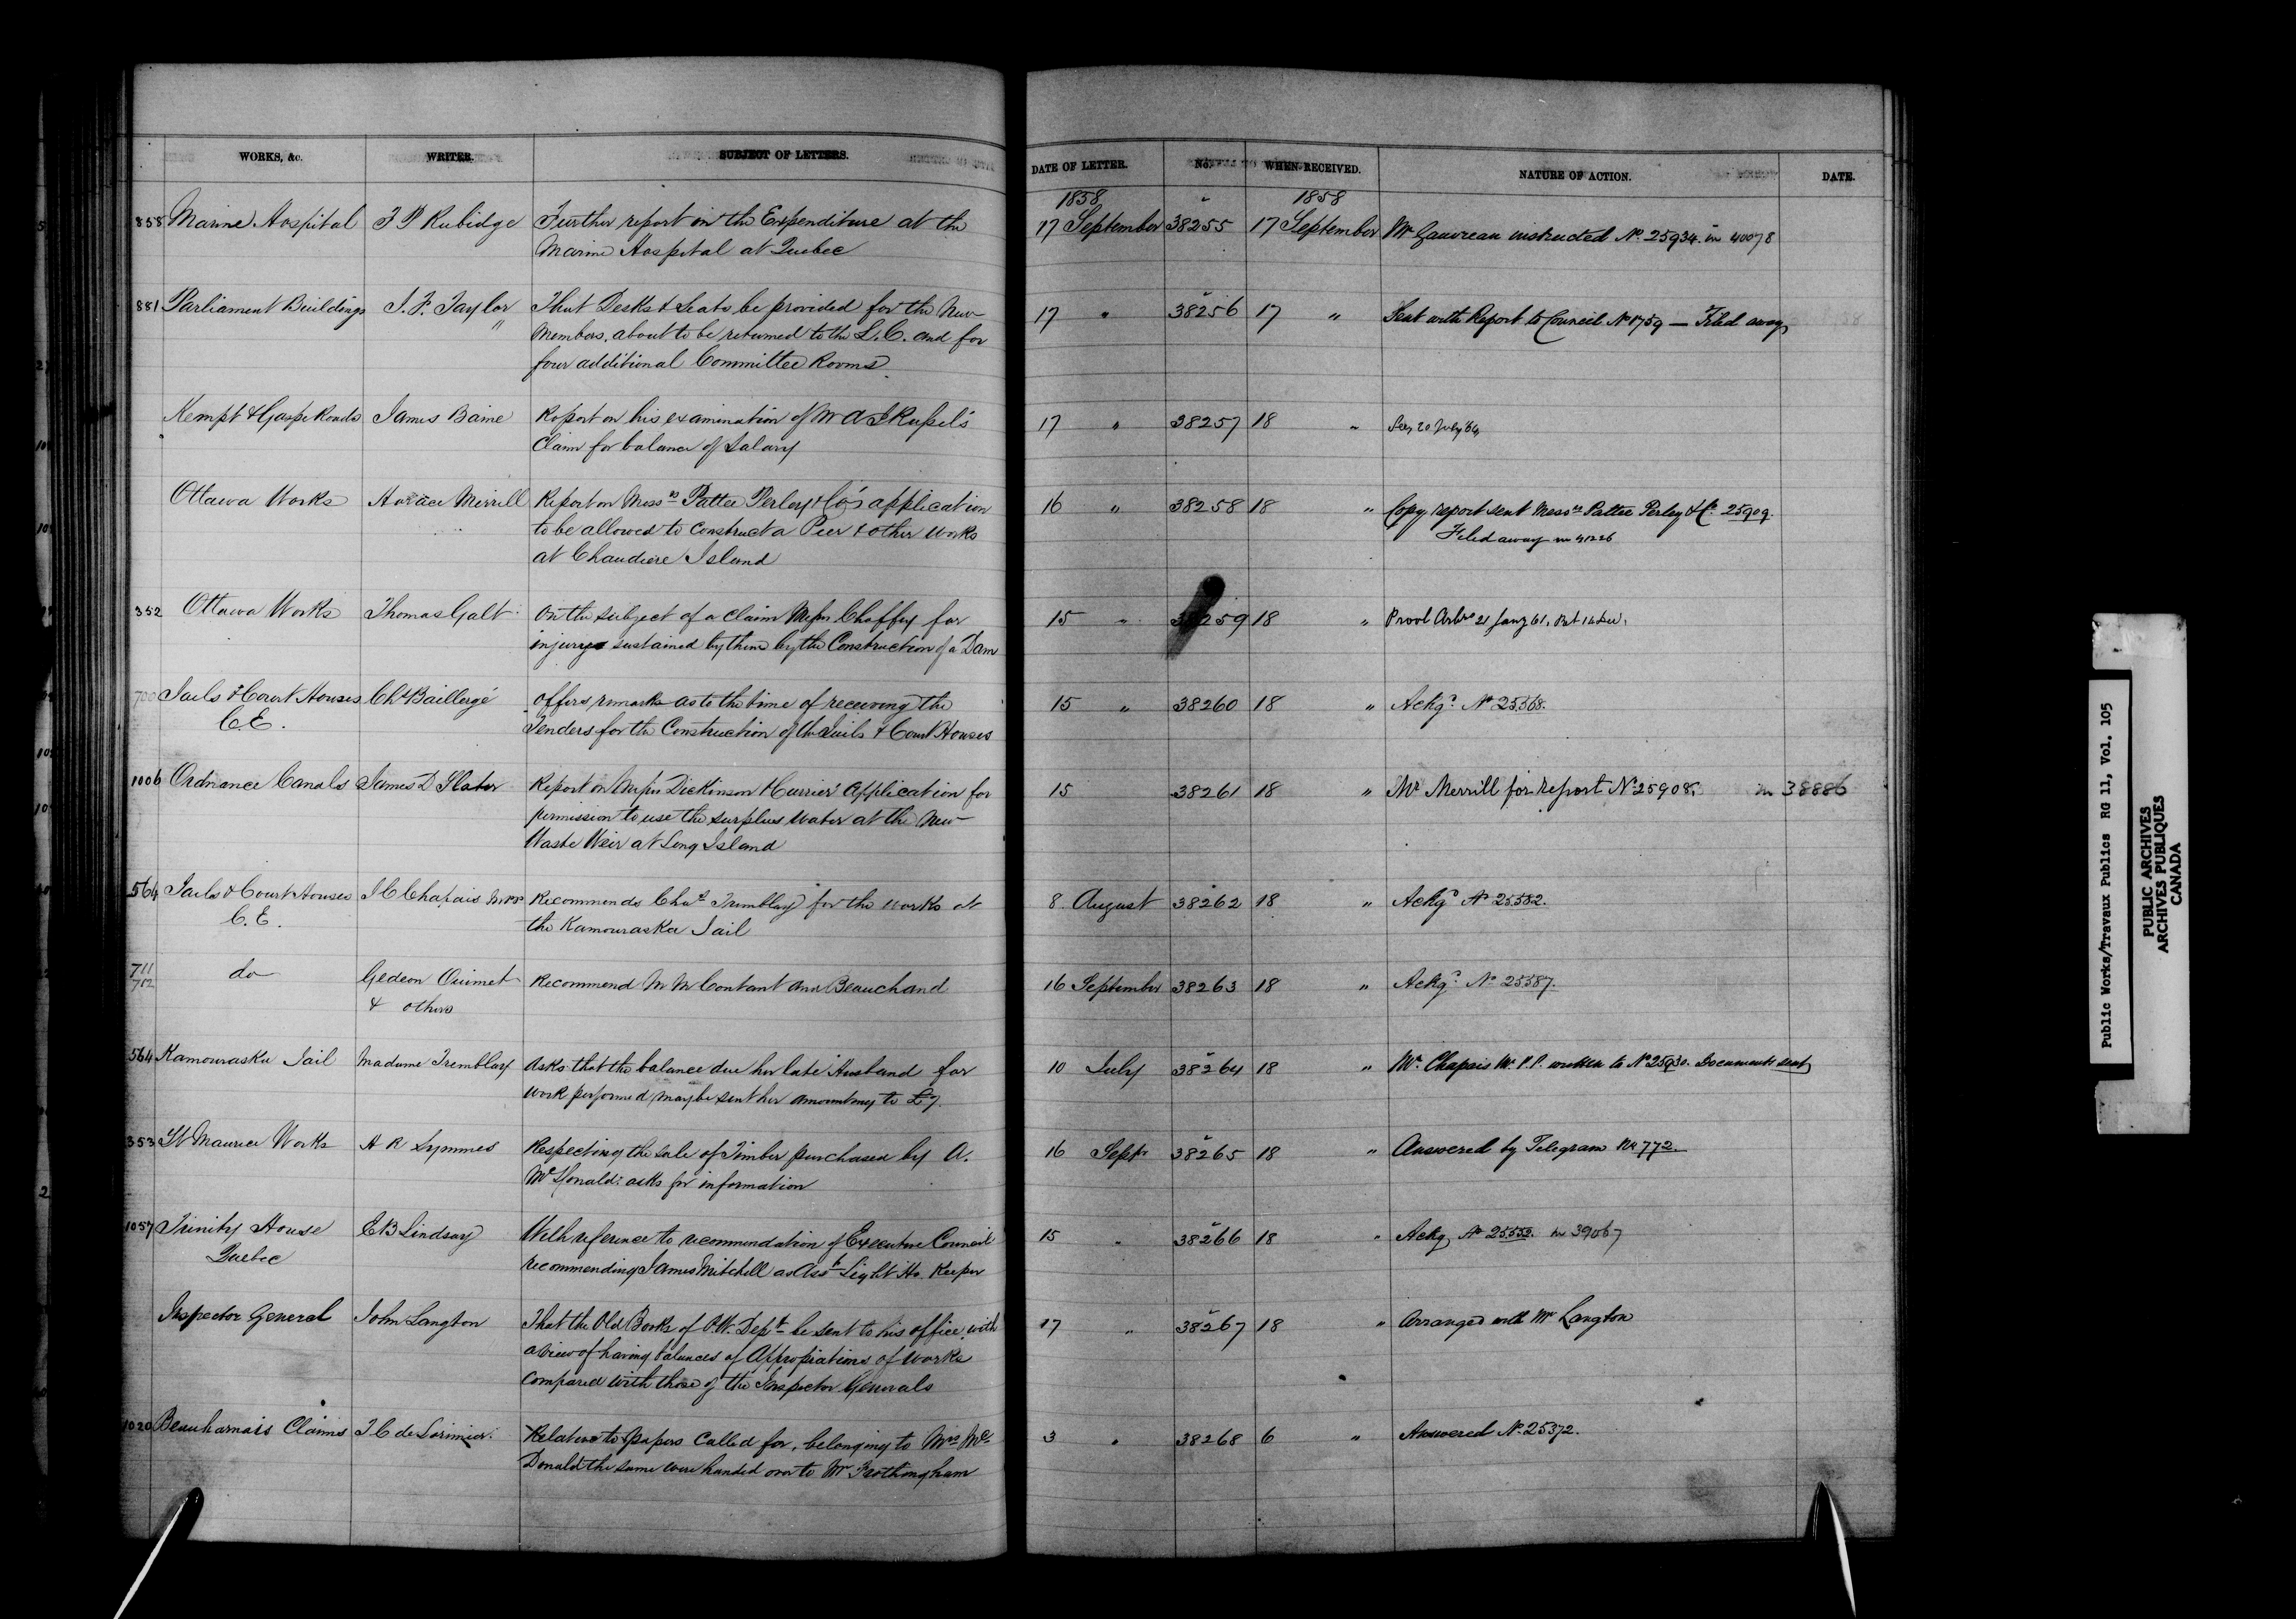 WORKS, &c. WRITER. SUBJECT OF LETTERS. DATE OF LETTER. No. WHEN RECEIVED. NATURE OF ACTION. DATE.
1858 1858
858 Marine Hospital F P Rubidge Further report on the Expenditure at the 17 September 38255 17 September Mr Gauvreau instructed No. 25934. in 40078
Marine Hospital at Quebec
881 Parliament Buildings J. F. Taylor That Desks & Seats be provided for the New 17 " 38256 17 " Sent with Report to Council No 1759 — Filed away
Members, about to be returned to the L. C. and for
four additional Committee Rooms
Kempt & Gaspe Roads James Baine Report on his examination of Mr A J Russel's 17 " 38257 18 " See, 20 July 64
Claim for balance of Salary
Ottawa Works Horace Merrill Report on Messrs Pattee Perley & Co's application 16 " 38258 18 " Copy report sent Messrs Pattee Perley & Co. 25909.
to be allowed to Construct a Pier & other works Filed away in 41226
at Chaudiere Island
352 Ottawa Works Thomas Galt On the subject of a claim Messrs Chaffey for 15 " 38259 18 " Provl Arbrs 21 Jany 61.
injury sustained by them by the Construction of a Dam
700 Jails & Court Houses Chs Baillergé Offers remarks as to the time of receiving the 15 " 38260 18 " Ackgd No 25568.
C. E. Tenders for the Construction of the Jails & Court Houses
1006 Ordnance Canals James D Slater Report on Messrs Dickinson & Currier Application for 15 38261 18 " Mr Merrill for report No 25908. in 38886
permission to use the surplus water at the New
Waste Weir at Long Island
564 Jails & Court Houses J C Chapais M.P.P. Recommends Chas Tremblay for the works at 8 August 38262 18 " Ackgd No 25582.
C. E. the Kamouraska Jail
711
712 do Gedeon Ouimet Recommend M M Contant and Beauchand 16 September 38263 18 " Ackgd No 25587.
& others
564 Kamouraska Jail Madame Tremblay Asks that the balance due her late Husband for 10 July 38264 18 " Mr. Chapais M. P. P. written to No 25930. Documents sent
work performed may be sent her amounting to £7.
353 St Maurice Works A R Symmes Respecting the sale of Timber purchased by A. 16 Septr 38265 18 " Answered by Telegram No 772
McDonald: asks for information
1057 Trinity House E B Lindsay With reference to recommendation of Executive Council 15 " 38266 18 " Ackg No 25552. in 39067
Quebec recommending James Mitchell as Asst Light Ho. Keeper
Inspector General John Langton That the Old Books of P.W. Dept be sent to his office with 17 " 38267 18 " Arranged with Mr Langton
a view of having balances of Appropiations of works
Compared with those of the Inspector Generals
1020 Beauharnais Claims T C de Lorimier Relative to papers called for, belonging to Mrs Mc 3 " 38268 6 " Answered No. 25372.
Donald the same were handed over to Mr Frothingham
Public Works/Travaux Publics RG 11, Vol. 105
PUBLIC ARCHIVES
ARCHIVES PUBLIQUES
CANADA